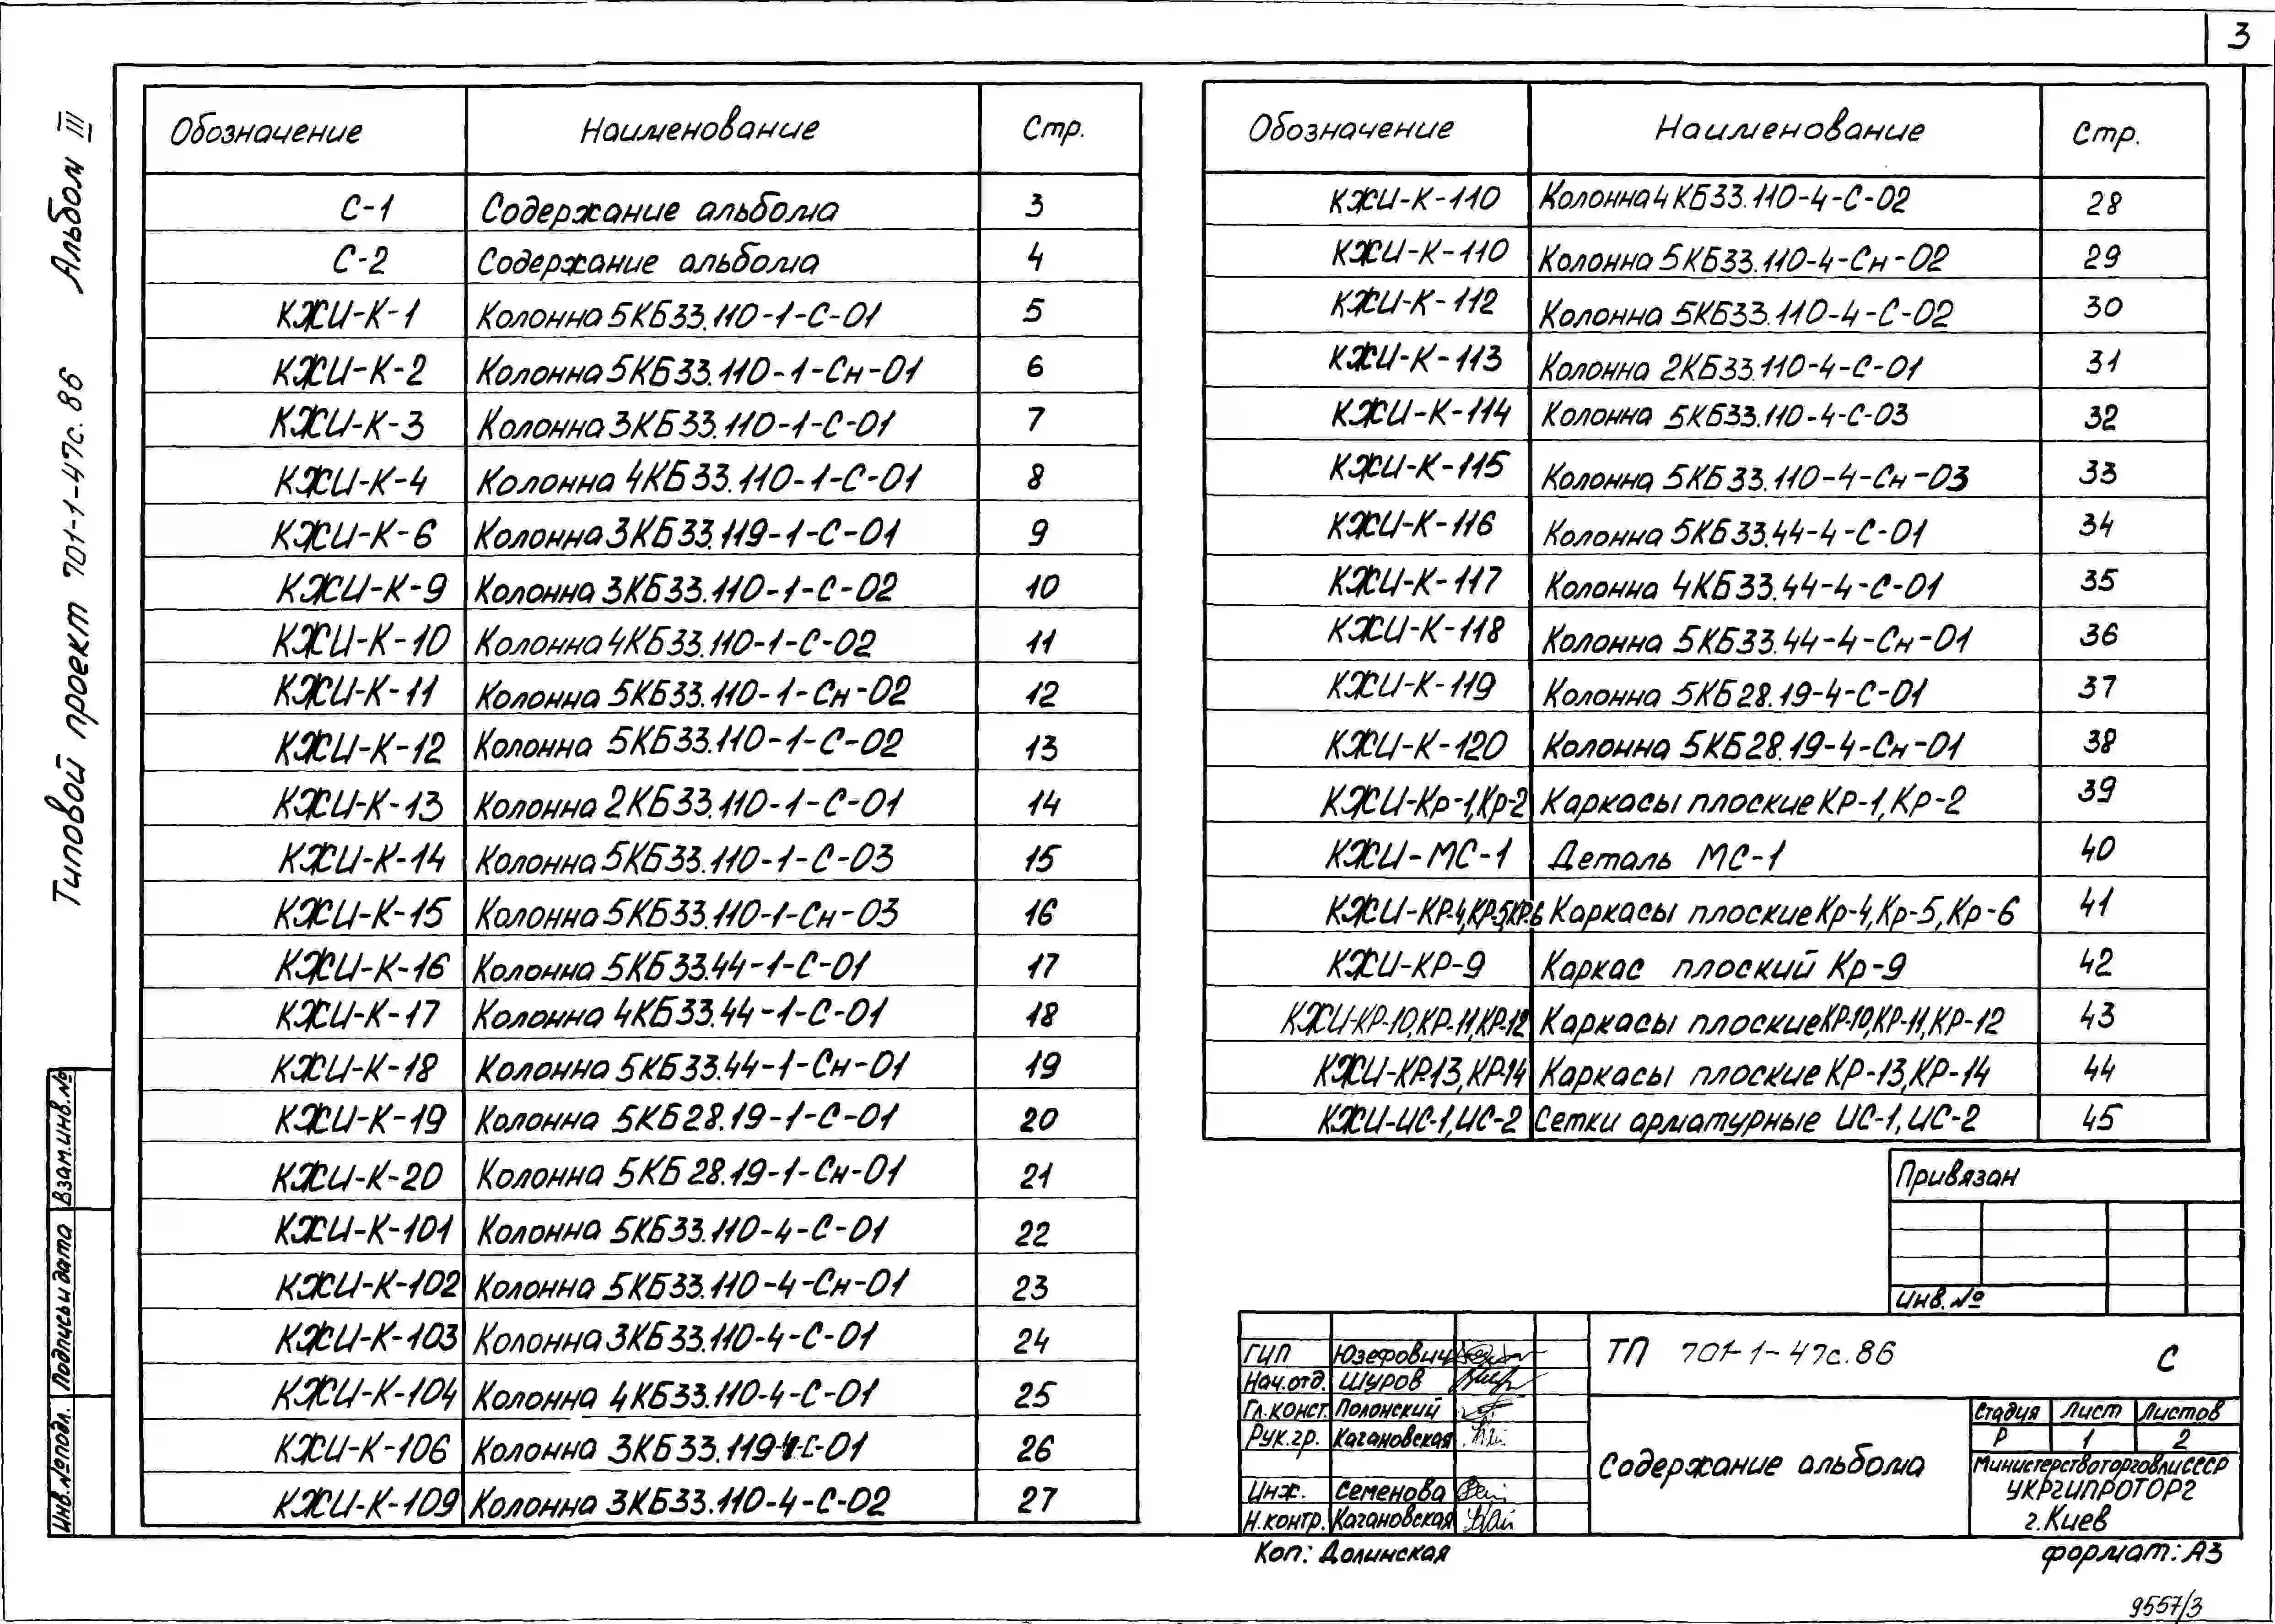 3
Альбом III
Типовой проект 701-1-47с.86
Обозначение Наименование Стр.
С-1 Содержание альбома 3
С-2 Содержание альбома 4
КЖИ-К-1 Колонна 5КБ33.110-1-С-01 5
КЖИ-К-2 Колонна 5КБ33.110-1-Сн-01 6
КЖИ-К-3 Колонна 3КБ33.110-1-С-01 7
КЖИ-К-4 Колонна 4КБ33.110-1-С-01 8
КЖИ-К-6 Колонна 3КБ33.119-1-С-01 9
КЖИ-К-9 Колонна 3КБ33.110-1-С-02 10
КЖИ-К-10 Колонна 4КБ33.110-1-С-02 11
КЖИ-К-11 Колонна 5КБ33.110-1-Сн-02 12
КЖИ-К-12 Колонна 5КБ33.110-1-С-02 13
КЖИ-К-13 Колонна 2КБ33.110-1-С-01 14
КЖИ-К-14 Колонна 5КБ33.110-1-С-03 15
КЖИ-К-15 Колонна 5КБ33.110-1-Сн-03 16
КЖИ-К-16 Колонна 5КБ33.44-1-С-01 17
КЖИ-К-17 Колонна 4КБ33.44-1-С-01 18
КЖИ-К-18 Колонна 5КБ33.44-1-Сн-01 19
КЖИ-К-19 Колонна 5КБ28.19-1-С-01 20
КЖИ-К-20 Колонна 5КБ28.19-1-Сн-01 21
КЖИ-К-101 Колонна 5КБ33.110-4-С-01 22
КЖИ-К-102 Колонна 5КБ33.110-4-Сн-01 23
КЖИ-К-103 Колонна 3КБ33.110-4-С-01 24
КЖИ-К-104 Колонна 4КБ33.110-4-С-01 25
КЖИ-К-106 Колонна 3КБ33.119-4-С-01 26
КЖИ-К-109 Колонна 3КБ33.110-4-С-02 27
Обозначение Наименование Стр.
КЖИ-К-110 Колонна 4КБ33.110-4-С-02 28
КЖИ-К-110 Колонна 5КБ33.110-4-Сн-02 29
КЖИ-К-112 Колонна 5КБ33.110-4-С-02 30
КЖИ-К-113 Колонна 2КБ33.110-4-С-01 31
КЖИ-К-114 Колонна 5КБ33.110-4-С-03 32
КЖИ-К-115 Колонна 5КБ33.110-4-Сн-03 33
КЖИ-К-116 Колонна 5КБ33.44-4-С-01 34
КЖИ-К-117 Колонна 4КБ33.44-4-С-01 35
КЖИ-К-118 Колонна 5КБ33.44-4-Сн-01 36
КЖИ-К-119 Колонна 5КБ28.19-4-С-01 37
КЖИ-К-120 Колонна 5КБ28.19-4-Сн-01 38
КЖИ-Кр-1,Кр-2 Каркасы плоские КР-1, Кр-2 39
КЖИ-МС-1 Деталь МС-1 40
КЖИ-КР-4,КР-5,КР-6 Каркасы плоские Кр-4, Кр-5, Кр-6 41
КЖИ-КР-9 Каркас плоский Кр-9 42
КЖИ-КР-10,КР-11,КР-12 Каркасы плоские КР-10,КР-11,КР-12 43
КЖИ-КР-13,КР-14 Каркасы плоские КР-13,КР-14 44
КЖИ-ИС-1,ИС-2 Сетки арматурные ИС-1, ИС-2 45
Привязан
Инв.№
ГИП Юзефович
Нач.отд. Шуров
Гл.конст. Полонский
Рук.гр. Кагановская
Инж. Семенова
Н.контр. Кагановская
ТП 701-1-47с.86 С
Содержание альбома
Стадия Лист Листов
Р 1 2
Министерство торговли СССР
УКРГИПРОТОРГ
г.Киев
Коп: Долинская
формат: А3
9557/3
Взам.инв.№
Подпись и дата
Инв.№ подл.